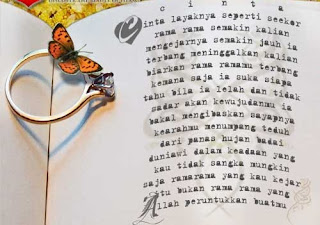 c i n t a
Cinta layaknya seperti seekor
rama rama semakin kalian
mengejarnya semakin jauh ia
terbang meninggalkan kalian
biarkan rama ramamu terbang
kemana saja ia suka siapa
tahu bila ia lelah dan tidak
sadar akan kewujudanmu ia
bakal mengibaskan sayapnya
kearahmu menumpang teduh
dari panas hujan badai
duniawi dalam keadaan yang
kau tidak sangka mungkin
saja ramarama yang kau kejar
itu bukan rama rama yang
Allah peruntukkan buatmu